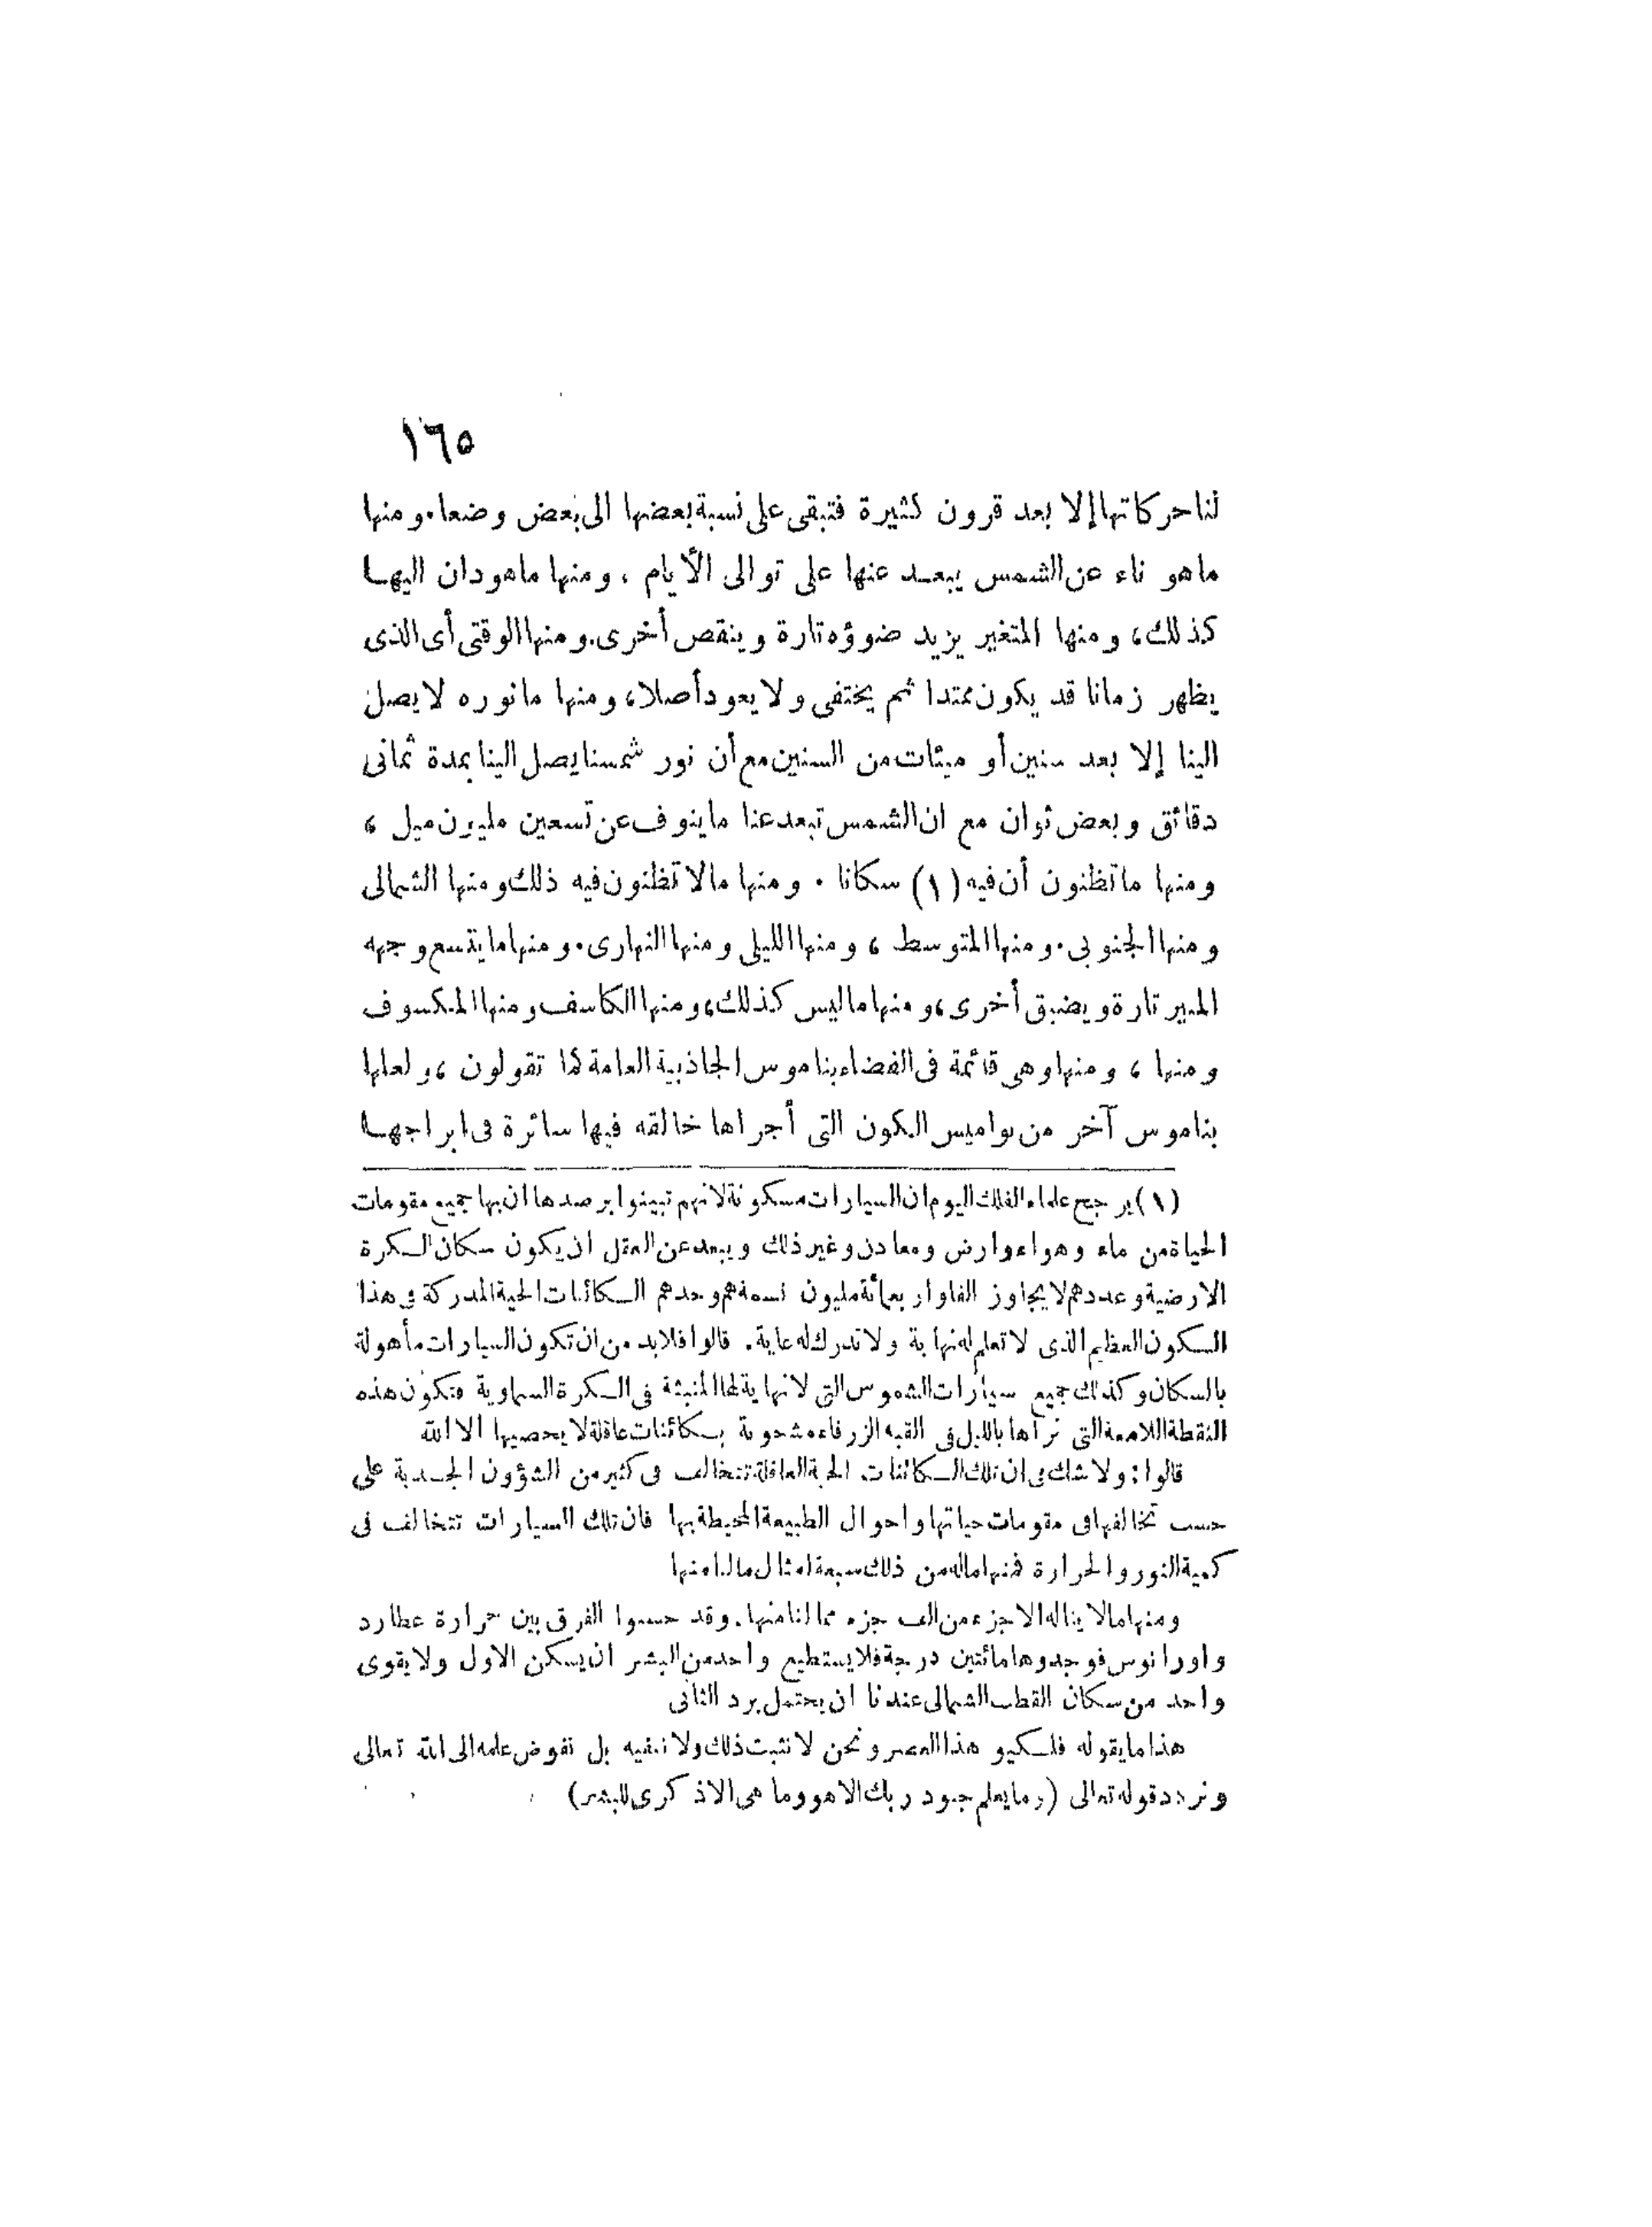 ١٦٥
لنا حركاتها إلا بعد قرون كثيرة فتبقى على نسبة بعضها الى بعض وضعا. ومنها
ما هو ناء عن الشمس يبعد عنها على توالى الأيام ، ومنها ما هو دان اليها
كذلك، ومنها المتغير يزيد ضوؤه تارة وينقص أخرى. ومنها الوقتى أى الذى
يظهر زمانا قد يكون ممتدا ثم يختفى ولا يعود أصلا، ومنها ما نوره لا يصل
الينا إلا بعد سنين أو ميئات من السنين مع أن نور شمسنا يصل الينا بمدة ثمانى
دقائق وبعض ثوان مع ان الشمس تبعد عنا ما ينوف عن تسعين مليون ميل ،
ومنها ما تظنون أن فيه (١) سكانا . ومنها ما لا تظنون فيه ذلك ومنها الشمالى
ومنها الجنوبى. ومنها المتوسط ، ومنها الليلى ومنها النهارى. ومنها ما يتسع وجهه
المنير تارة ويضيق أخرى، ومنها ما ليس كذلك، ومنها الكاسف ومنها المكسوف
ومنها ، ومنها وهى قائمة فى الفضاء بناموس الجاذبية العامة كما تقولون ، ولعلها
بناموس آخر من نواميس الكون التى أجراها خالقه فيها سائرة فى ابراجها
(١) يرجح علماء الفلك اليوم ان السيارات مسكونة لانهم تبينوا برصدها ان بها جميع مقومات
الحياة من ماء وهواء وارض ومعادن وغير ذلك ويبعد عن العقل ان يكون سكان الكرة
الارضية وعددهم لا يجاوز الفا واربعمائة مليون نسمة هم وحدهم الكائنات الحية المدركة فى هذا
الكون العظيم الذى لا تعلم له نهاية ولا تدرك له غاية. قالوا فلابد من ان تكون السيارات مأهولة
بالسكان وكذلك جميع سيارات الشموس التى لا نهاية لها المنبثة فى الكرة السماوية فتكون هذه
النقطة اللامعة التى نراها بالليل فى القبه الزرقاء مشحونة بكائنات عاقلة لا يحصيها الا الله
قالوا: ولا شك فى ان تلك الكائنات الحية العاقلة تتخالف فى كثير من الشؤون الجسدية على
حسب تخالفها فى مقومات حياتها واحوال الطبيعة المحيطة بها فان تلك السيارات تتخالف فى
كمية النور والحرارة فمنها ماله من ذلك سبعة امثال مالنا منها
ومنها مالا يناله الا جزء من الف جزء مما لنا منها. وقد حسبوا الفرق بين حرارة عطارد
واورانوس فوجدوها مائتين درجة فلا يستطيع واحد من البشر ان يسكن الاول ولا يقوى
واحد من سكان القطب الشمالى عندنا ان يحتمل برد الثانى
هذا ما يقوله فلكيو هذا العصر ونحن لا نثبت ذلك ولا ننفيه بل نفوض علمه الى الله تعالى
ونردد قوله تعالى (وما يعلم جنود ربك الا هو وما هى الا ذكرى للبشر)